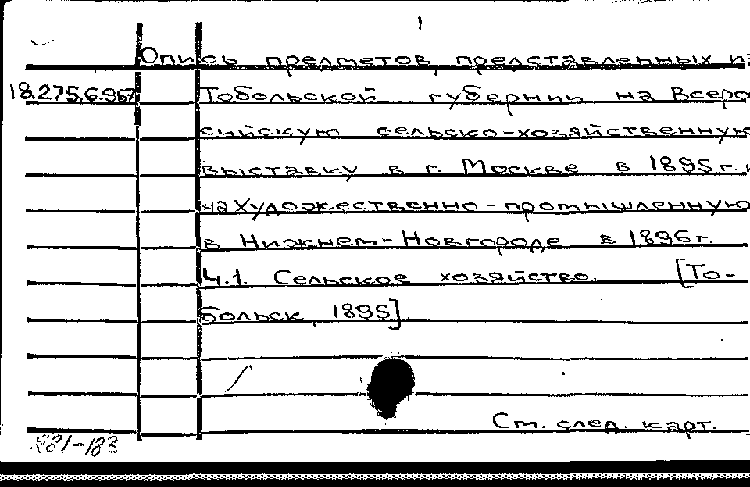 1
Опись предметов, представленных из
18.275.6.967 Тобольской губернии на Всеро
сийскую сельско-хозяйственную
выставку в г. Москве в 1895 г. и
на Художественно-промышленную
в Нижнем-Новгороде в 1896 г.
Ч.1. Сельское хозяйство. [То-
больск, 1895]
См. след. карт.
181-183